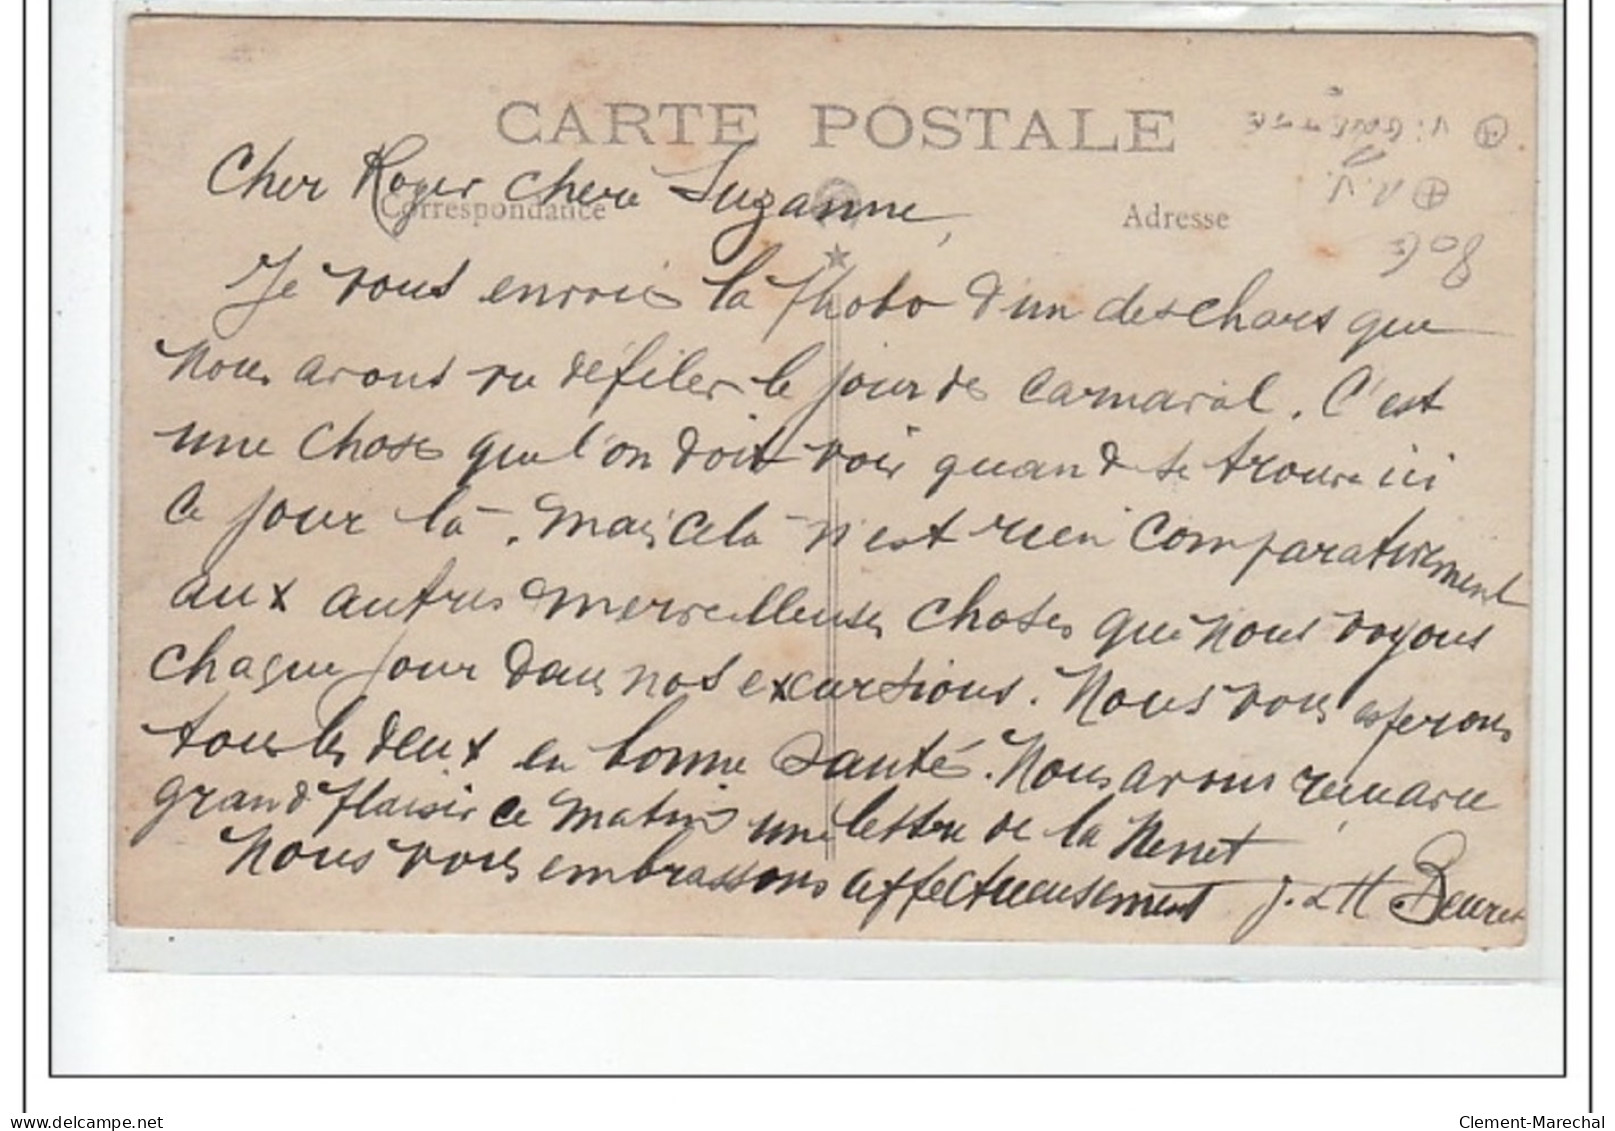 CARTE POSTALE
Correspondance
Adresse
908
Cher Roger chere Suzanne,
Je vous envoie la photo d'un des chars que
nous avons vu défiler le jour de carnaval. C'est
une chose que l'on doit voir quand se trouve ici
ce jour là. Mais cela n'est rien comparativement
aux autres merveilleuses choses que nous voyons
chaque jour dans nos excursions. Nous vous esperons
tous les deux en bonne santé. Nous avons reçu avec
grand plaisir ce matin une lettre de la Nenet
Nous vous embrassons affectueusement J. et H Beuret
delcampe.net
Clement-Marechal